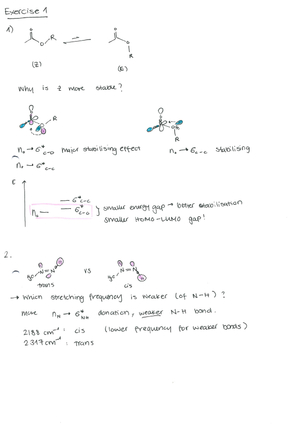 Exercise 1
1)
O
O
R
O
O
R
(Z)
(E)
Why is Z more stable?
R
nₒ → σ*C-O major stabilising effect
nₒ → σ*C-C stabilising
nₒ → σ*C-C
E
σ*C-C
σ*C-O
nₒ
smaller energy gap → better stabilisation
smaller HOMO-LUMO gap!
2.
N=N
H
trans
vs
N=N
H
cis
→ Which stretching frequency is weaker (of N-H)?
more nN → σ*NH donation, weaker N-H bond.
2188 cm⁻¹ : cis (lower frequency for weaker bonds)
2317 cm⁻¹ : trans